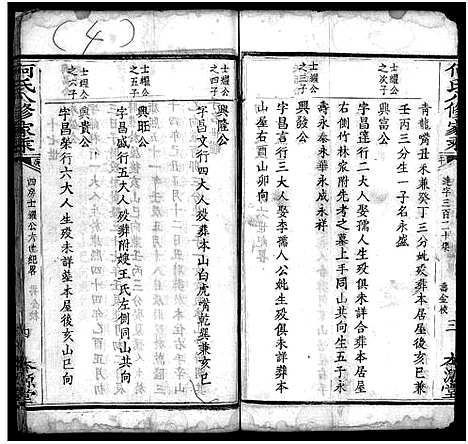 何氏八修家乘
青龍嘴丑未兼癸丁三分姒歿葬本居屋後亥山巳向兼
壬丙三分生一子名永盛
士繼公之次子
興富公
字昌達行二大人娶李孺人生歿俱未詳合葬本居屋
右側竹林家附先考之墓上手同山共向生五子永
壽永泰永華永成永祥
士繼公之三子
興發公
字昌言行三大人娶李孺人公妣生歿俱未詳葬本
山屋右丁山卯向
三
本源堂
(4)
士繼公之四子
興隆公
字昌文行四大人歿葬本山白虎嘴乾巽兼亥巳
士繼公之五子
興旺公
字昌盛行五大人歿葬附嫂王氏左側同山共向
士繼公之六子
興貴公
字昌榮行六大人生歿未詳葬本屋後亥山巳向
何氏八修家乘
四房士繼公六世紀畧
本源堂